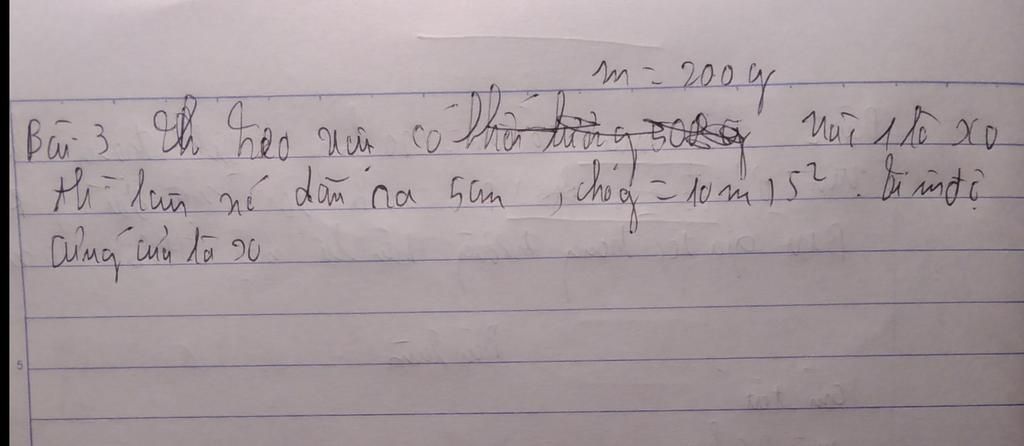 m = 200g
Bài 3 treo vật có khối lượng 500g vào 1 lò xo
thì làm nó dãn ra 5cm, cho g = 10m/s². Tìm độ
cứng của lò xo